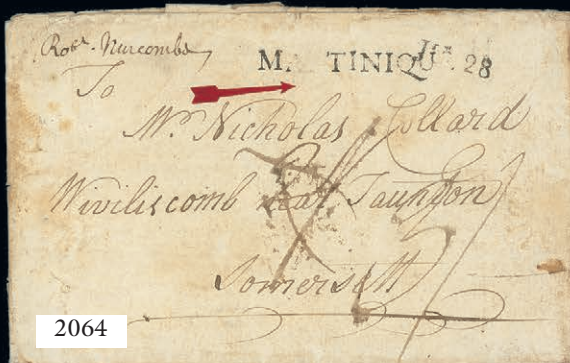 Robt. Nurcombe
MARTINIQUE 28
To
Mr. Nicholas Collard
Wiviliscomb near Taunton
Somersett
2064